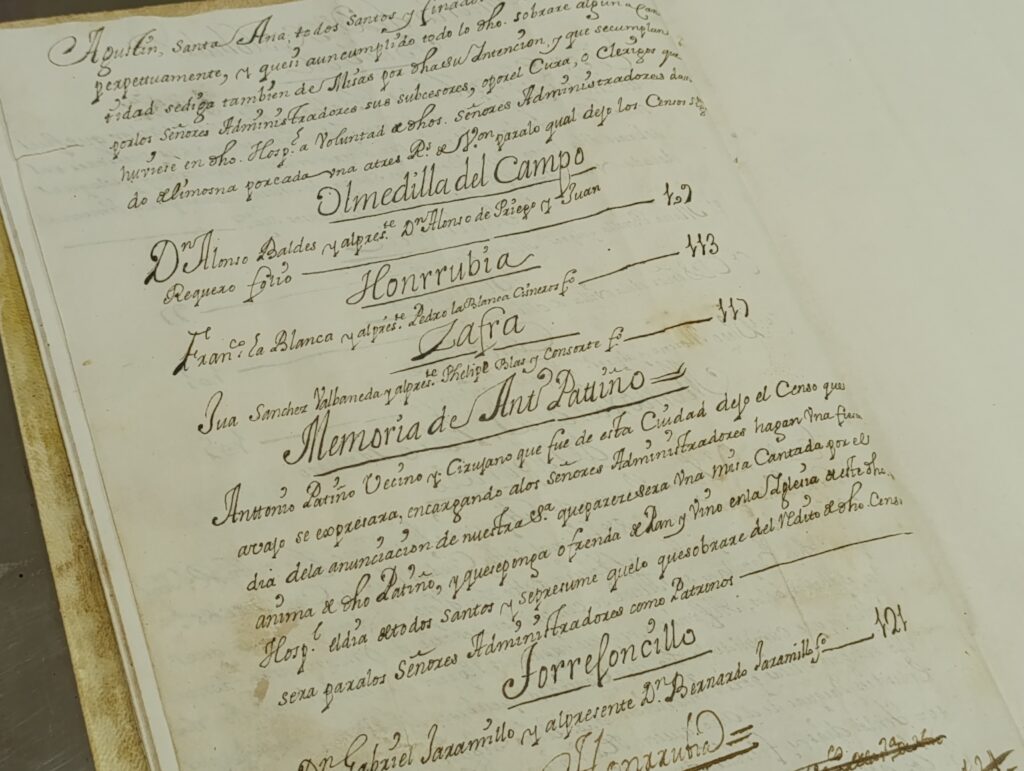 Agustin, Santa Ana, todos Santos y
perpettuamente, y quesi auncumplido todo lo dho. sobrare alguna
tidad sediga tambien de Misas por dhasu Intencion, y que secumplan
porlos Señores Administradores sus subcesores, oporel Cura, o Clerigos que
huviere en dho. Hosp.l a Voluntad de dhos. Señores Administradores dan
do delimosna porcada una atres R.s de V.on paralo qual dejo los Censos
Olmedilla del Campo
D.n Alonso Baldes y alpres.te D.n Alonso de Priego y Juan
Requero folio
Honrrubia
Fran.co la Blanca y alpres.te Pedro la Blanca Cisneros fo 113
Zafra
Jua Sanchez Valbaneda y alpres.te Phelipe Blas y Consorte fo 117
Memoria de Ant.o Pattiño
Anttonio Patiño Vecino y Cirujano que fue de esta Ciudad dejo el Censo que
avajo se expresara, encargando alos Señores Administradores hagan Una fiesta
dia dela anunciacion de nuestra S.a que paraeresera Una misa Cantada por el
anima de dho Patiño, y queseponga ofrenda de Pan y Vino enla Iglesia de este dho.
Hosp.l eldia detodos Santos y sepresume quelo quesobrare del redito de dho. Censo
sera paralos Señores Administradores como Patronos
Torresoncillo
D.n Gabriel Jaramillo y alpresente D.n Bernardo Jaramillo fo 121
Honrrubia